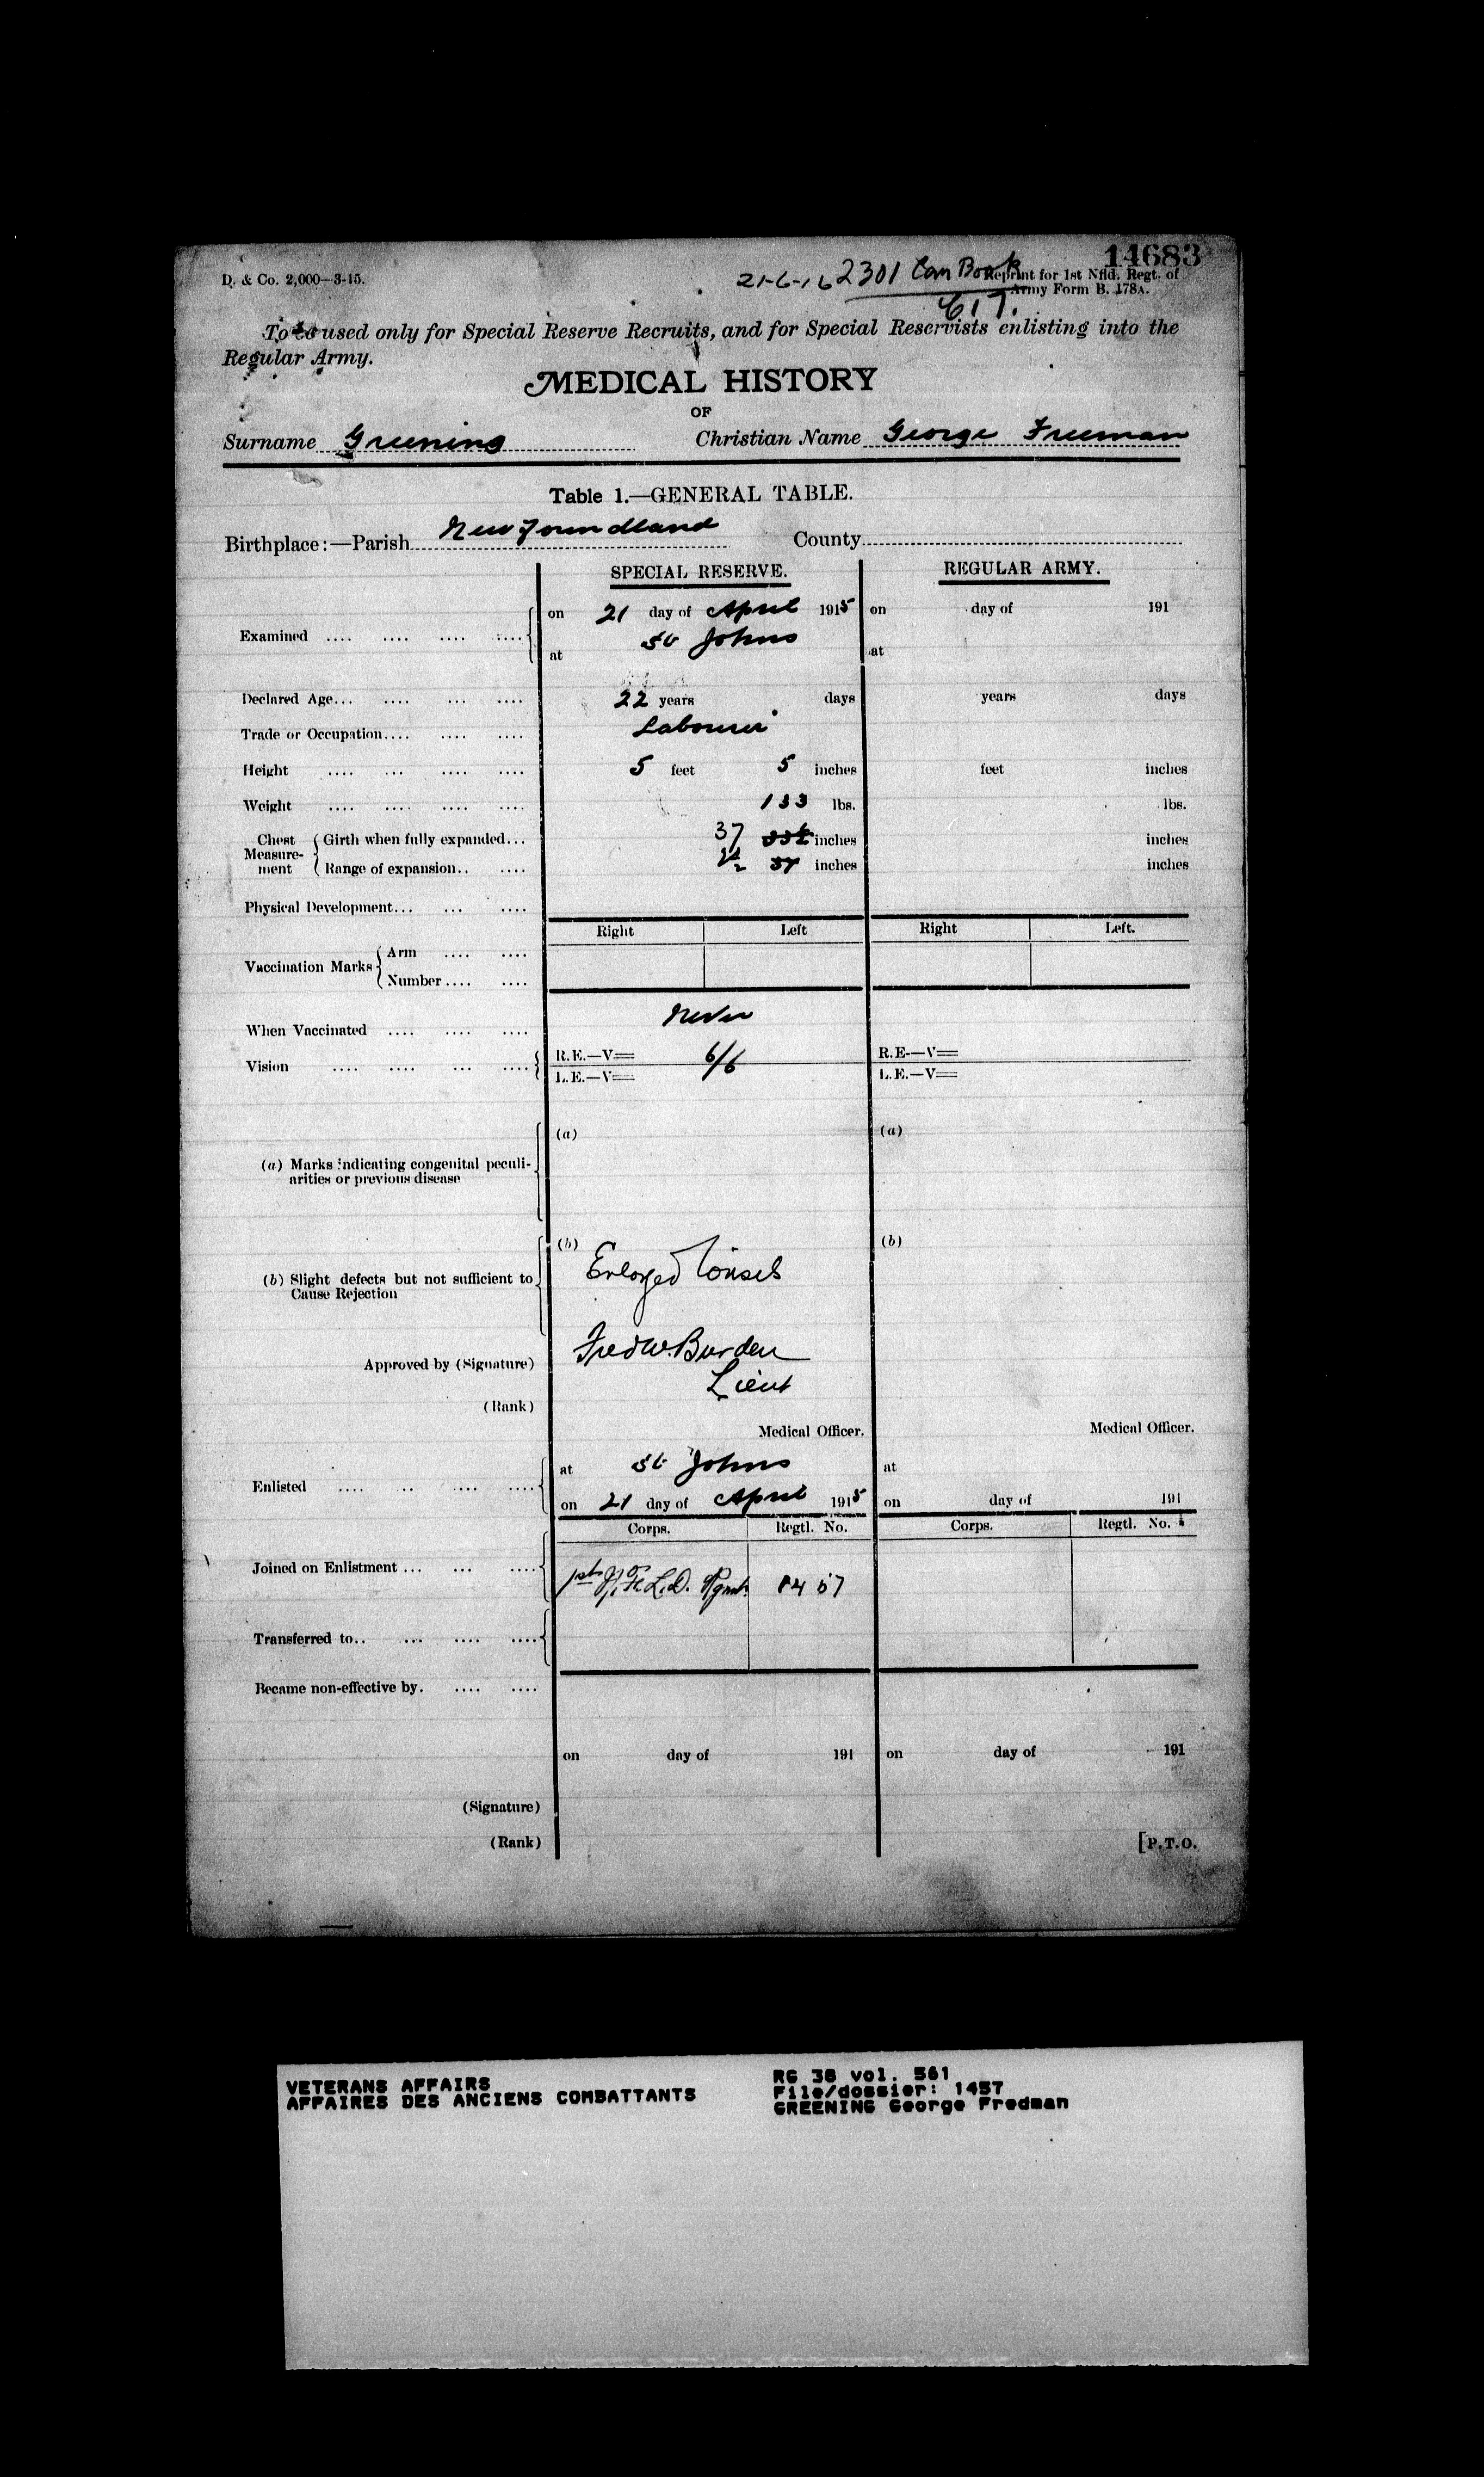 14683
D. & Co. 2,000—3-15.
21-6-16 2301 Can Book
Reprint for 1st Nfld. Regt. of
Army Form B. 178A.
617.
To be used only for Special Reserve Recruits, and for Special Reservists enlisting into the
Regular Army.
MEDICAL HISTORY
OF
Surname Greening Christian Name George Freeman
Table 1.—GENERAL TABLE.
Birthplace:—Parish Newfoundland County
SPECIAL RESERVE. REGULAR ARMY.
on 21 day of April 1915 on day of 191
Examined .... .... .... ....
at St Johns at
Declared Age... .... ... .... 22 years days years days
Trade or Occupation.... .... .... Labourer
Height .... ... .... .... 5 feet 5 inches feet inches
Weight .... .... .... .... 133 lbs. lbs.
Chest Measurement Girth when fully expanded... 37 inches inches
Range of expansion.. .... inches inches
Physical Development... ... ....
Right Left Right Left.
Vaccination Marks Arm .... ....
Number .... ....
When Vaccinated .... .... .... Never
Vision .... .... ... .... R.E.—V= 6/6 R.E.—V=
L.E.—V= L.E.—V=
(a) (a)
(a) Marks indicating congenital peculi-
arities or previous disease
(b) (b)
(b) Slight defects but not sufficient to Enlarged Tonsels
Cause Rejection
Approved by (Signature) Fred W. Burden
Lieut
(Rank)
Medical Officer. Medical Officer.
at St Johns at
Enlisted .... .. .... ....
on 21 day of April 1915 on day of 191
Corps. Regtl. No. Corps. Regtl. No.
Joined on Enlistment ... ... .... 1st N.F.L.D. Rgmt. 1457
Transferred to.. ... .... ....
Became non-effective by. .... ....
on day of 191 on day of 191
(Signature)
(Rank)
[P.T.O.
VETERANS AFFAIRS
AFFAIRES DES ANCIENS COMBATTANTS
RG 38 vol. 561
File/dossier: 1457
GREENING George Fredman